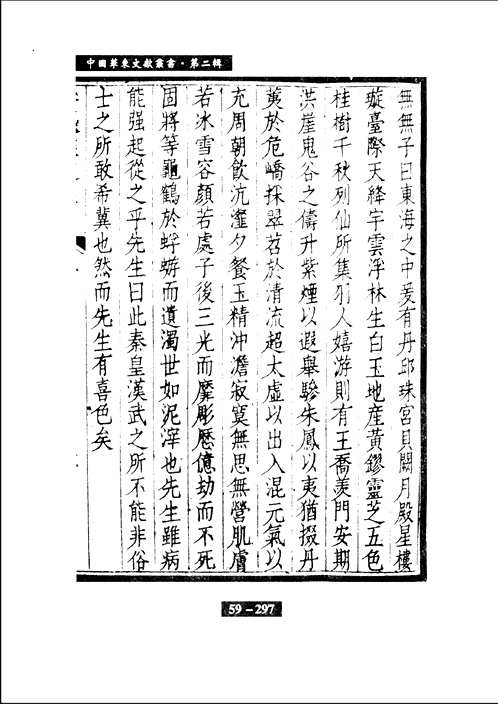 中國華東文獻叢書·第二輯
無無子曰東海之中爰有丹邱珠宮貝闕月殿星樓
璇臺際天絳宇雲浮林生白玉地產黃鏐靈芝五色
桂樹千秋列仙所集羽人嬉游則有王喬羨門安期
洪崖鬼谷之儔升紫煙以遐舉驂朱鳳以夷猶掇丹
荑於危嶠採翠苕於清流超太虛以出入混元氣以
充周朝飲沆瀣夕餐玉精沖澹寂寞無思無營肌膚
若冰雪容顏若處子後三光而靡彫歷億劫而不死
固將等龜鶴於蜉蝣而遺濁世如泥滓也先生雖病
能强起從之乎先生曰此秦皇漢武之所不能非俗
士之所敢希冀也然而先生有喜色矣
59-297